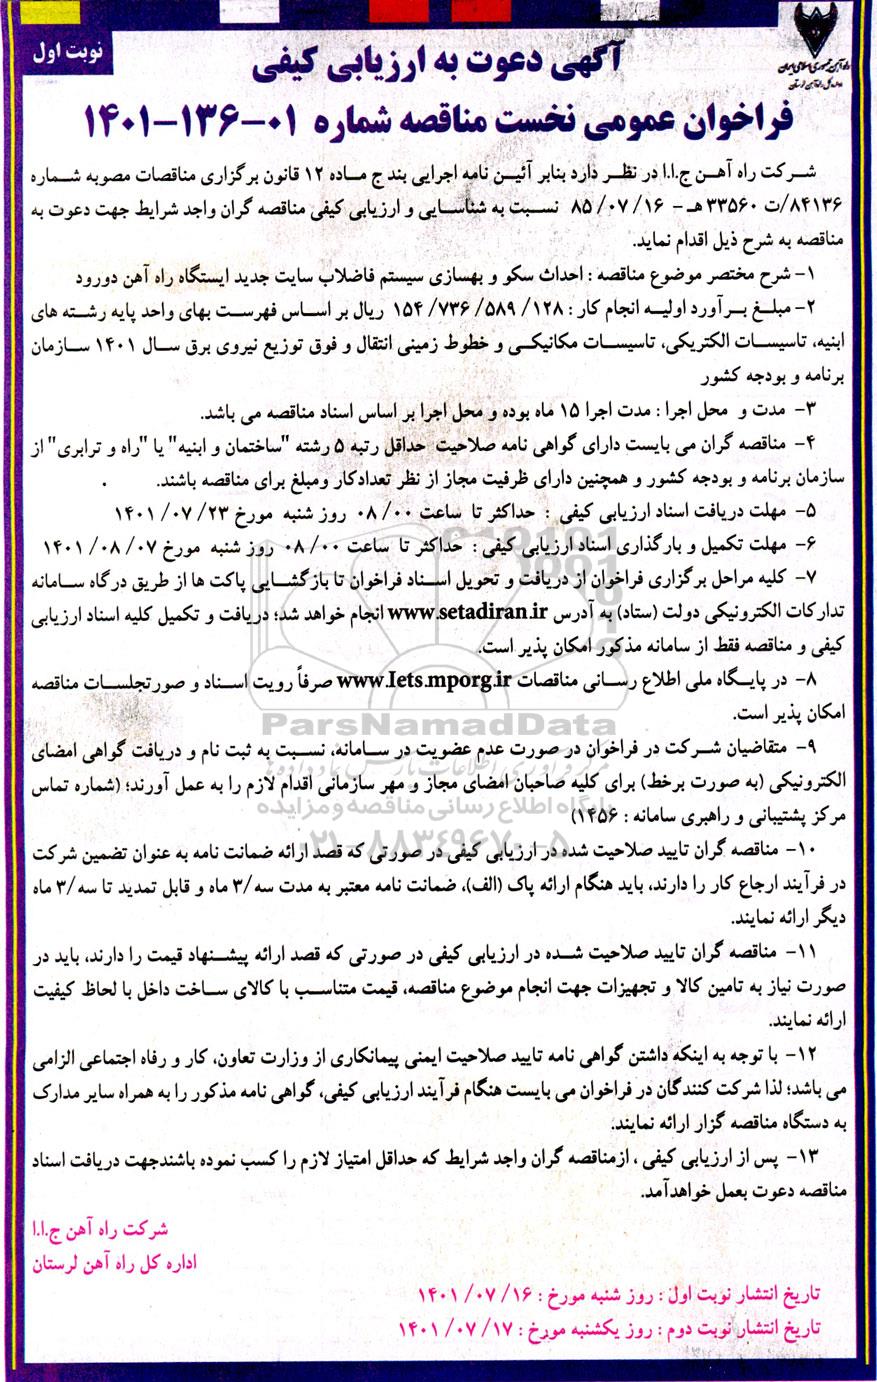 نوبت اول
راه آهن جمهوری اسلامی ایران
اداره کل راه آهن لرستان
آگهی دعوت به ارزیابی کیفی
فراخوان عمومی نخست مناقصه شماره ۰۱-۱۳۶-۱۴۰۱
شرکت راه آهن ج.ا.ا در نظر دارد بنابر آئین نامه اجرایی بند ج ماده ۱۲ قانون برگزاری مناقصات مصوبه شماره
۸۴۱۳۶/ت ۳۳۵۶۰ هـ - ۸۵/۰۷/۱۶ نسبت به شناسایی و ارزیابی کیفی مناقصه گران واجد شرایط جهت دعوت به
مناقصه به شرح ذیل اقدام نماید.
۱- شرح مختصر موضوع مناقصه : احداث سکو و بهسازی سیستم فاضلاب سایت جدید ایستگاه راه آهن دورود
۲- مبلغ برآورد اولیه انجام کار : ۱۵۴/۷۳۶/۵۸۹/۱۲۸ ریال بر اساس فهرست بهای واحد پایه رشته های
ابنیه، تاسیسات الکتریکی، تاسیسات مکانیکی و خطوط زمینی انتقال و فوق توزیع نیروی برق سال ۱۴۰۱ سازمان
برنامه و بودجه کشور
۳- مدت و محل اجرا : مدت اجرا ۱۵ ماه بوده و محل اجرا بر اساس اسناد مناقصه می باشد.
۴- مناقصه گران می بایست دارای گواهی نامه صلاحیت حداقل رتبه ۵ رشته "ساختمان و ابنیه" یا "راه و ترابری" از
سازمان برنامه و بودجه کشور و همچنین دارای ظرفیت مجاز از نظر تعدادکار ومبلغ برای مناقصه باشند.
۵- مهلت دریافت اسناد ارزیابی کیفی : حداکثر تا ساعت ۰۸/۰۰ روز شنبه مورخ ۱۴۰۱/۰۷/۲۳
۶- مهلت تکمیل و بارگذاری اسناد ارزیابی کیفی : حداکثر تا ساعت ۰۸/۰۰ روز شنبه مورخ ۱۴۰۱/۰۸/۰۷
۷- کلیه مراحل برگزاری فراخوان از دریافت و تحویل اسناد فراخوان تا بازگشایی پاکت ها از طریق درگاه سامانه
تدارکات الکترونیکی دولت (ستاد) به آدرس www.setadiran.ir انجام خواهد شد؛ دریافت و تکمیل کلیه اسناد ارزیابی
کیفی و مناقصه فقط از سامانه مذکور امکان پذیر است.
۸- در پایگاه ملی اطلاع رسانی مناقصات www.Iets.mporg.ir صرفاً رویت اسناد و صورتجلسات مناقصه
امکان پذیر است.
ParsNamadData
۹- متقاضیان شرکت در فراخوان در صورت عدم عضویت در سامانه، نسبت به ثبت نام و دریافت گواهی امضای
الکترونیکی (به صورت برخط) برای کلیه صاحبان امضای مجاز و مهر سازمانی اقدام لازم را به عمل آورند؛ (شماره تماس
پایگاه اطلاع رسانی مناقصه و مزایده
مرکز پشتیبانی و راهبری سامانه : ۱۴۵۶)
۰۲۱-۸۸۳۴۹۶۷۰-۵
۱۰- مناقصه گران تایید صلاحیت شده در ارزیابی کیفی در صورتی که قصد ارائه ضمانت نامه به عنوان تضمین شرکت
در فرآیند ارجاع کار را دارند، باید هنگام ارائه پاک (الف)، ضمانت نامه معتبر به مدت سه/۳ ماه و قابل تمدید تا سه/۳ ماه
دیگر ارائه نمایند.
۱۱- مناقصه گران تایید صلاحیت شده در ارزیابی کیفی در صورتی که قصد ارائه پیشنهاد قیمت را دارند، باید در
صورت نیاز به تامین کالا و تجهیزات جهت انجام موضوع مناقصه، قیمت متناسب با کالای ساخت داخل با لحاظ کیفیت
ارائه نمایند.
۱۲- با توجه به اینکه داشتن گواهی نامه تایید صلاحیت ایمنی پیمانکاری از وزارت تعاون، کار و رفاه اجتماعی الزامی
می باشد؛ لذا شرکت کنندگان در فراخوان می بایست هنگام فرآیند ارزیابی کیفی، گواهی نامه مذکور را به همراه سایر مدارک
به دستگاه مناقصه گزار ارائه نمایند.
۱۳- پس از ارزیابی کیفی ، ازمناقصه گران واجد شرایط که حداقل امتیاز لازم را کسب نموده باشندجهت دریافت اسناد
مناقصه دعوت بعمل خواهدآمد.
شرکت راه آهن ج.ا.ا
اداره کل راه آهن لرستان
تاریخ انتشار نوبت اول : روز شنبه مورخ : ۱۴۰۱/۰۷/۱۶
تاریخ انتشار نوبت دوم : روز یکشنبه مورخ : ۱۴۰۱/۰۷/۱۷